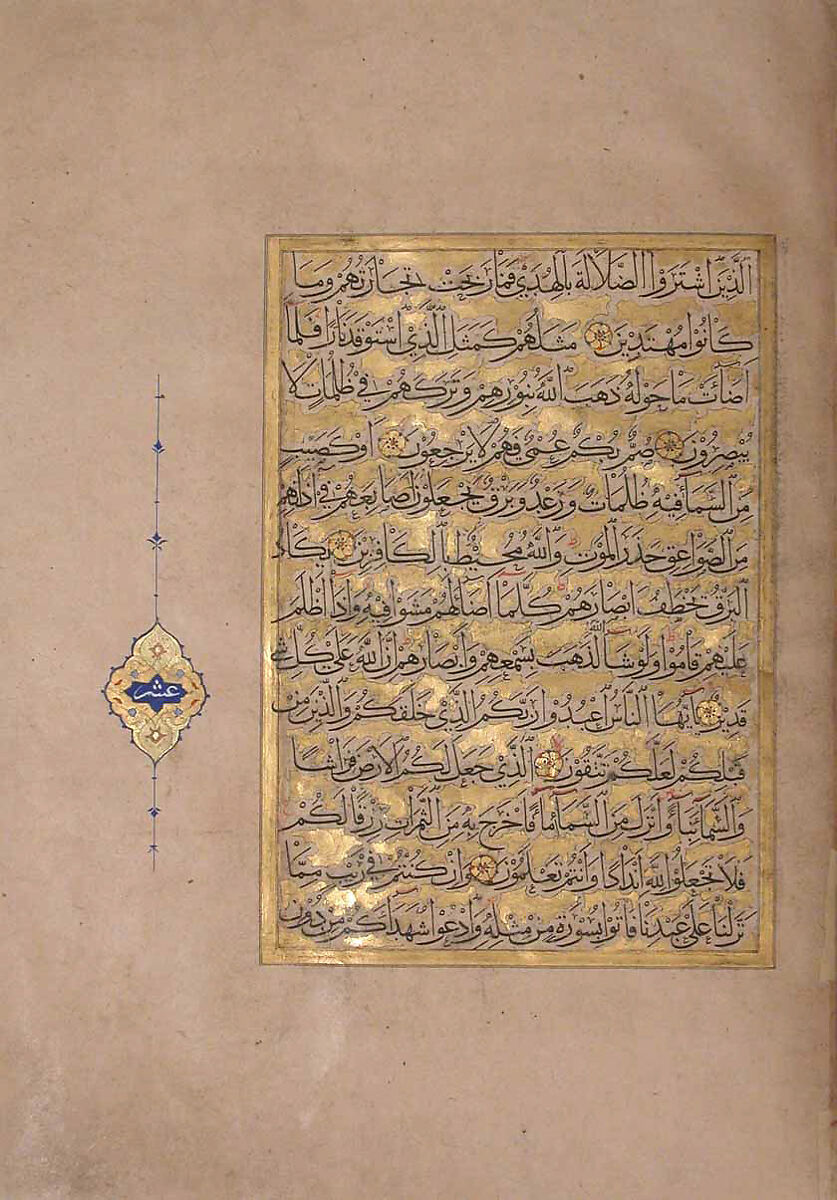 الَّذِينَ اشْتَرَوُا الضَّلَالَةَ بِالْهُدَى فَمَا رَبِحَتْ تِجَارَتُهُمْ وَمَا
كَانُوا مُهْتَدِينَ مَثَلُهُمْ كَمَثَلِ الَّذِي اسْتَوْقَدَ نَارًا فَلَمَّا
اَضَآءَتْ مَا حَوْلَهُ ذَهَبَ اللَّهُ بِنُورِهِمْ وَتَرَكَهُمْ فِي ظُلُمَاتٍ لَا
يُبْصِرُونَ صُمٌّ بُكْمٌ عُمْيٌ فَهُمْ لَا يَرْجِعُونَ اَوْ كَصَيِّبٍ
مِنَ السَّمَآءِ فِيهِ ظُلُمَاتٌ وَرَعْدٌ وَبَرْقٌ يَجْعَلُونَ اَصَابِعَهُمْ فِي اٰذَانِهِمْ
مِنَ الصَّوَاعِقِ حَذَرَ الْمَوْتِ وَاللَّهُ مُحِيطٌ بِالْكَافِرِينَ يَكَادُ
الْبَرْقُ يَخْطَفُ اَبْصَارَهُمْ كُلَّمَا اَضَآءَ لَهُمْ مَشَوْا فِيهِ وَاِذَا اَظْلَمَ
عَلَيْهِمْ قَامُوا وَلَوْ شَآءَ اللَّهُ لَذَهَبَ بِسَمْعِهِمْ وَاَبْصَارِهِمْ اِنَّ اللَّهَ عَلَى كُلِّ شَيْءٍ
قَدِيرٌ يَآ اَيُّهَا النَّاسُ اعْبُدُوا رَبَّكُمُ الَّذِي خَلَقَكُمْ وَالَّذِينَ مِنْ
قَبْلِكُمْ لَعَلَّكُمْ تَتَّقُونَ الَّذِي جَعَلَ لَكُمُ الْاَرْضَ فِرَاشًا
وَالسَّمَآءَ بِنَآءً وَاَنْزَلَ مِنَ السَّمَآءِ مَآءً فَاَخْرَجَ بِهِ مِنَ الثَّمَرَاتِ رِزْقًا لَكُمْ
فَلَا تَجْعَلُوا لِلَّهِ اَنْدَادًا وَاَنْتُمْ تَعْلَمُونَ وَاِنْ كُنْتُمْ فِي رَيْبٍ مِمَّا
نَزَّلْنَا عَلَى عَبْدِنَا فَاْتُوا بِسُورَةٍ مِنْ مِثْلِهِ وَادْعُوا شُهَدَآءَكُمْ مِنْ دُونِ
عشر